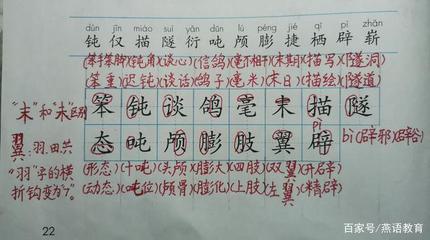 dùn jǐn miáo suì yǎn dūn lú péng jié qī pì zhǎn
钝 仅 描 隧 衍 吨 颅 膨 捷 栖 辟 崭
(笨手笨脚)(钝角)(谈心)(信鸽)(毫不相干)(末期)(描写)(隧洞)
(笨重)(迟钝)(谈话)(鸽子)(毫米)(末日)(描绘)(隧道)
"末"和"未"区别
笨 钝 谈 鸽 毫 末 描 隧
pì
态 吨 颅 膨 肢 翼 辟
bì(辟邪)(辟谷)
翼:羽.田共
"羽"字的横
折钩变为"
(形态)(十吨)(头颅)(膨大)(四肢)(双翼)(开辟)
(动态)(吨位)(颅骨)(膨化)(上肢)(左翼)(精辟)
22
百家号/燕语教育